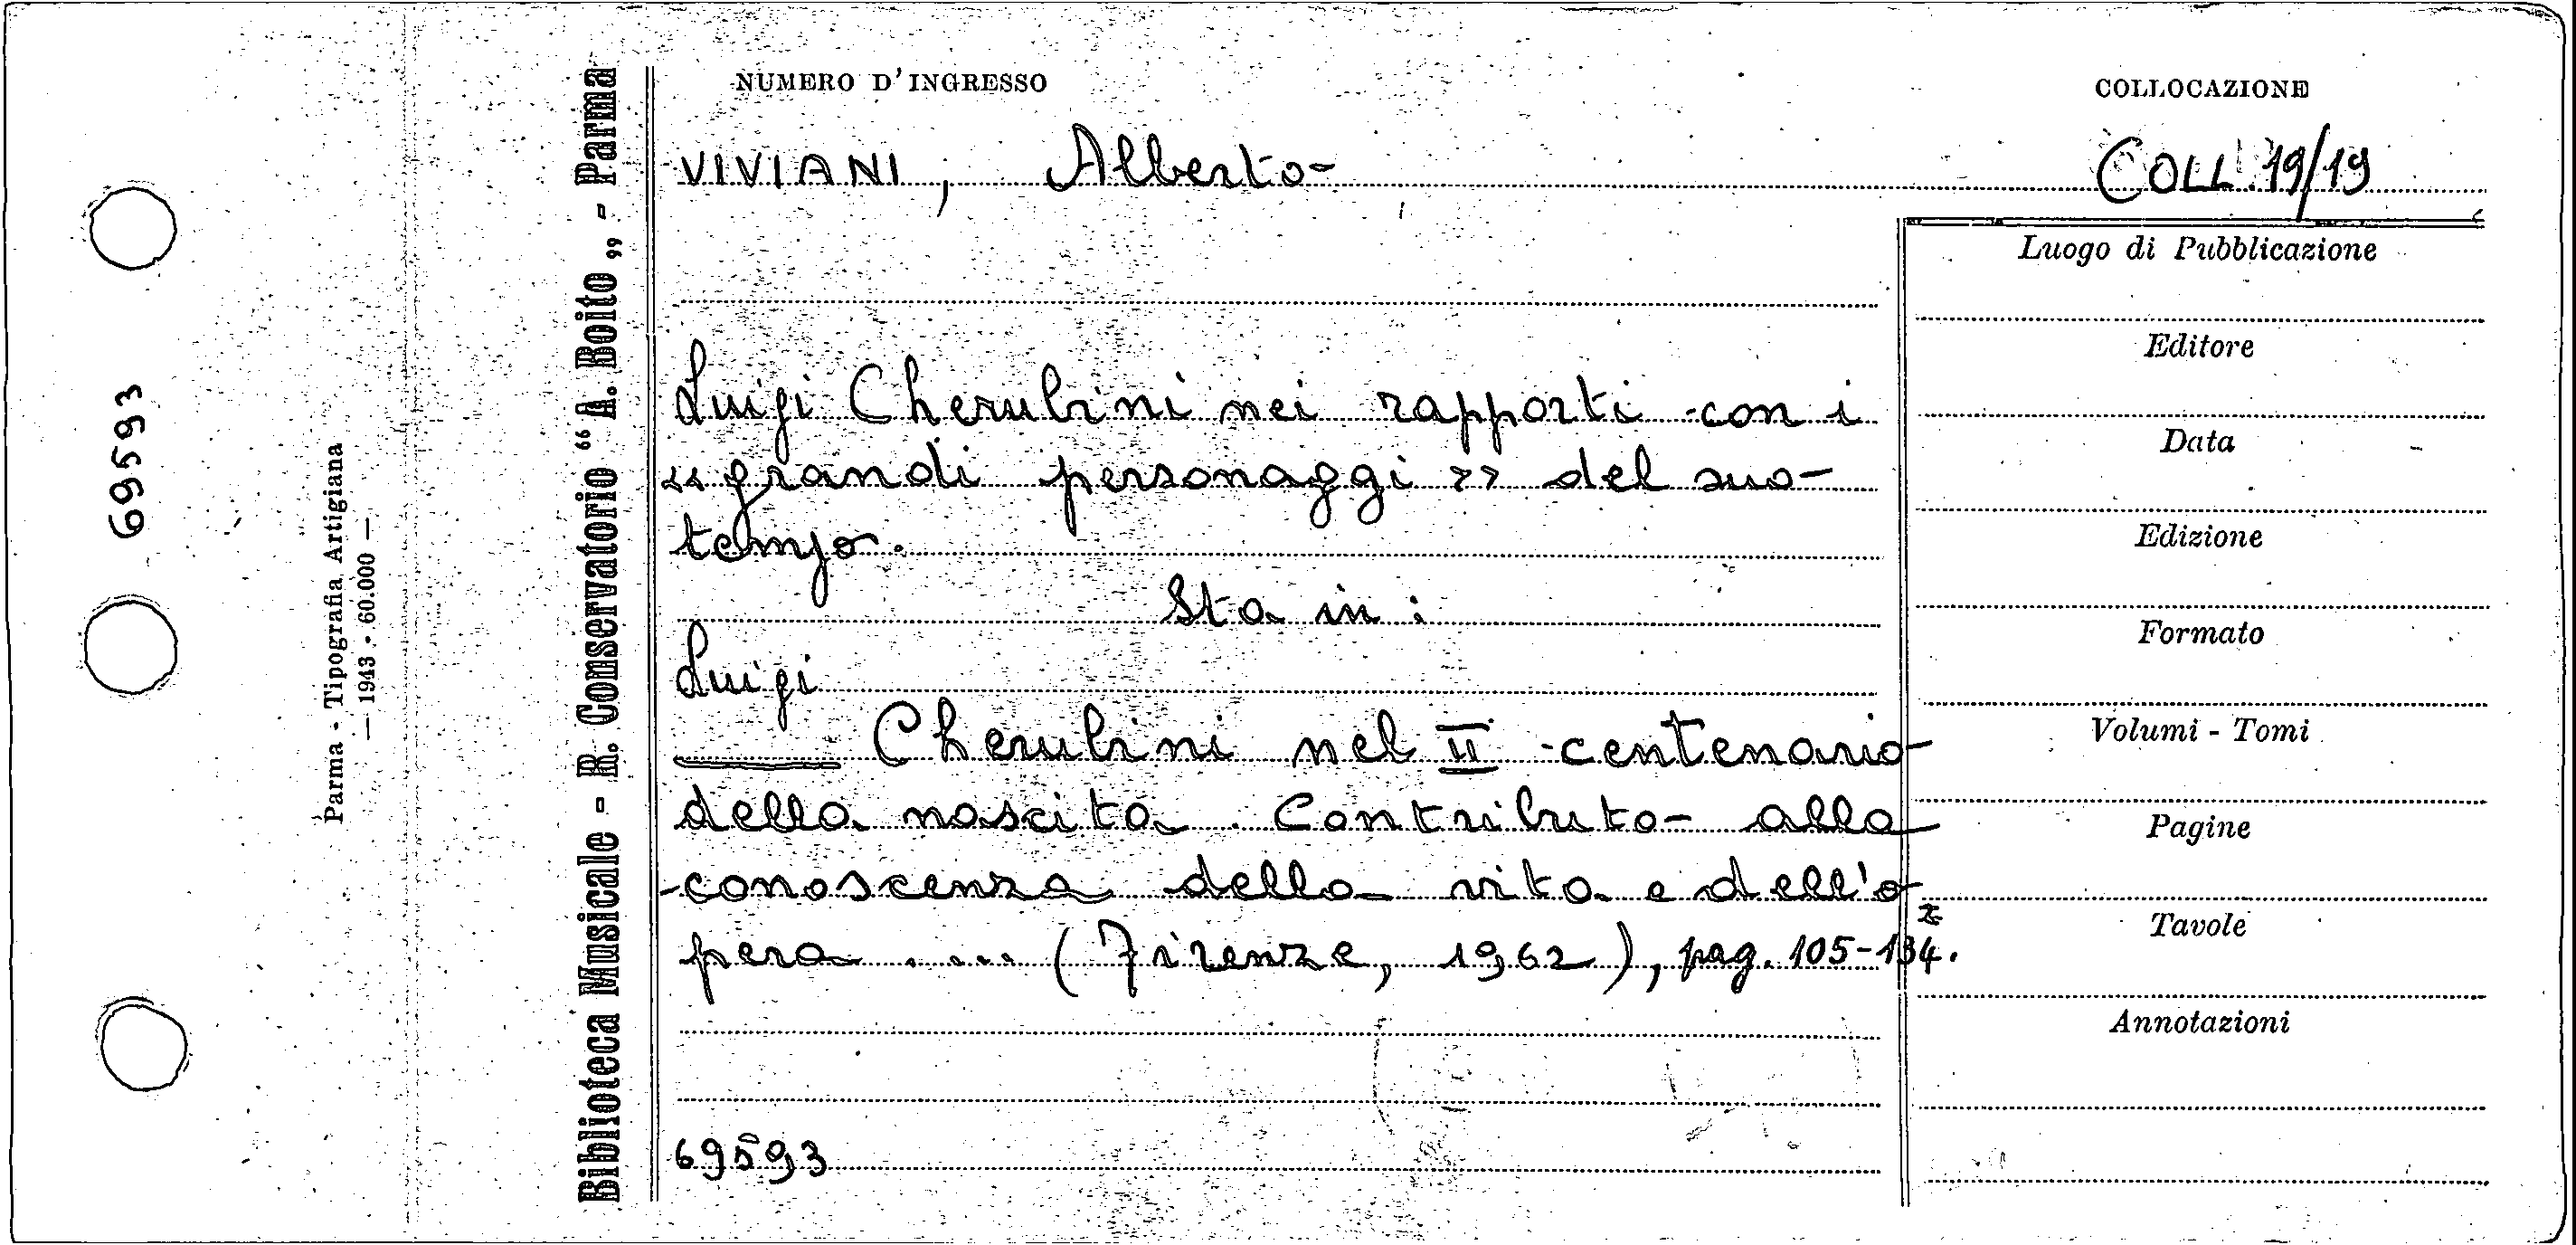 NUMERO D'INGRESSO
COLLOCAZIONE
VIVIANI, Alberto
COLL. 19/19
Luigi Cherubini nei rapporti con i
«grandi personaggi» del suo
tempo.
Sta in:
Luigi
Cherubini nel II centenario
della nascita. Contributo alla
conoscenza della vita e dell'o
pera .... (Firenze, 1962), pag. 105-134.
69593
Luogo di Pubblicazione
Editore
Data
Edizione
Formato
Volumi - Tomi
Pagine
Tavole
Annotazioni
Biblioteca Musicale - R. Conservatorio “A. Boito„ - Parma
Parma - Tipografia Artigiana
— 1943 - 60.000 —
69593